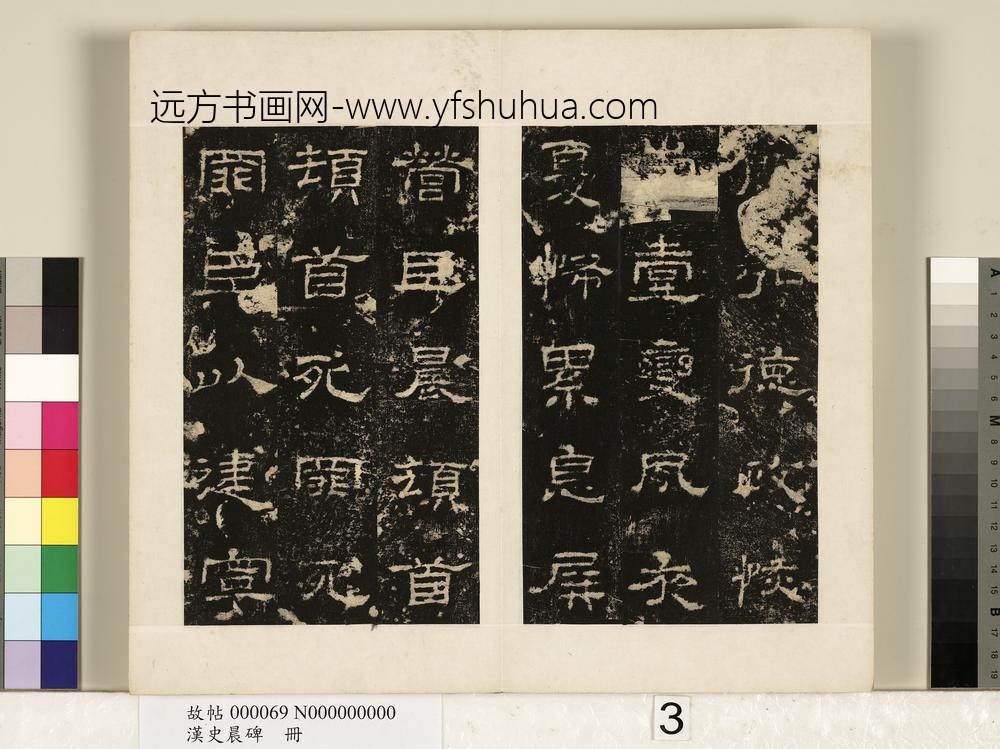 远方书画网-www.yfshuhua.com
弘德政恢
壹變夙夜
憂怖累息屏
營臣晨頓首
頓首死罪死
罪臣以建寧
故帖 000069 N000000000
漢史晨碑 冊
3
A 1 2 3 4 5 6 M 8 9 10 11 12 13 14 15 B 17 18 19